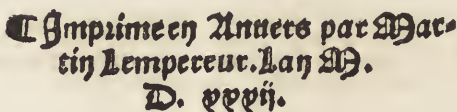 ¶ Imprime en Anuers par Mar-
tin Lempereur. Lan M.
D. xxxij.